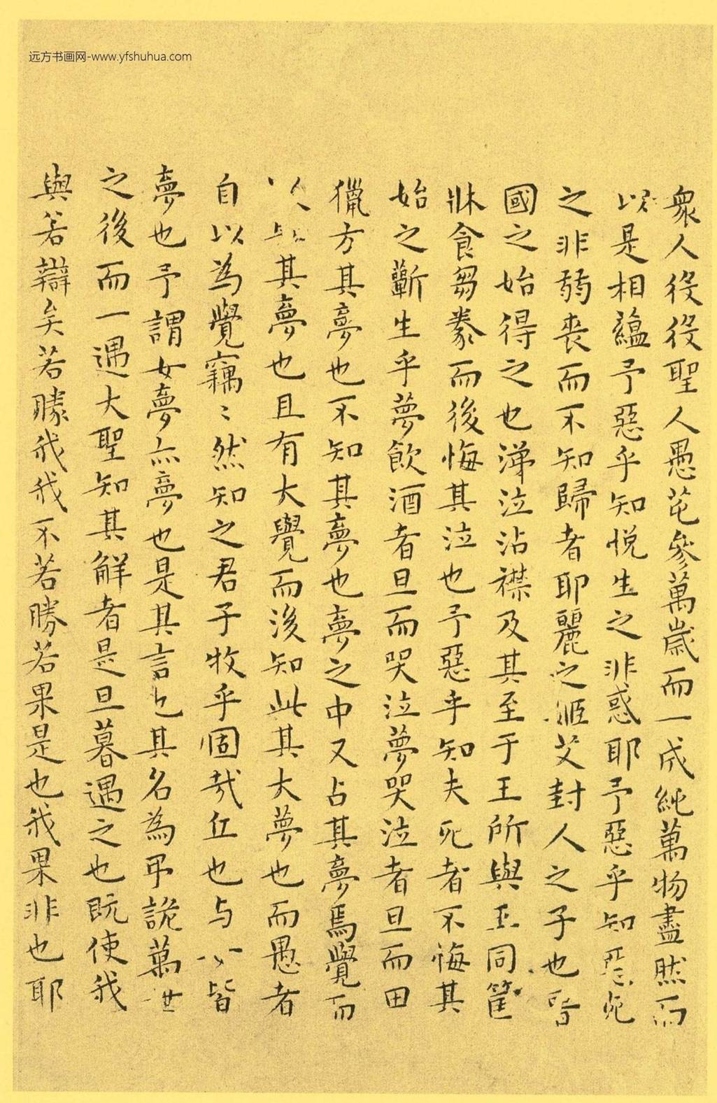 远方书画网-www.yfshuhua.com
衆人役役聖人愚芚參萬歲而一成純萬物盡然而
以是相蘊予惡乎知悅生之非惑耶予惡乎知惡死
之非弱喪而不知歸者耶麗之姬艾封人之子也晉
國之始得之也涕泣沾襟及其至于王所與王同筐
牀食芻豢而後悔其泣也予惡乎知夫死者不悔其
始之蘄生乎夢飲酒者旦而哭泣夢哭泣者旦而田
獵方其夢也不知其夢也夢之中又占其夢焉覺而
其夢也且有大覺而後知此其大夢也而愚者
自以為覺竊〻然知之君子牧乎固哉丘也与女皆
夢也予謂女夢亦夢也是其言也其名為弔詭萬世
之後而一遇大聖知其解者是旦暮遇之也既使我
與若辯矣若勝我我不若勝若果是也我果非也耶